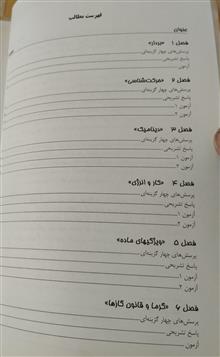 فهرست مطالب
عنوان
فصل ۱ «بردار»
پرسش‌های چهار گزینه‌ای
پاسخ تشریحی
آزمون
فصل ۲ «حرکت‌شناسی»
پرسش‌های چهار گزینه‌ای
پاسخ تشریحی
آزمون ۱
آزمون ۲
فصل ۳ «دینامیک»
پرسش‌های چهار گزینه‌ای
پاسخ تشریحی
آزمون ۱
آزمون ۲
فصل ۴ «کار و انرژی»
پرسش‌های چهار گزینه‌ای
پاسخ تشریحی
آزمون ۱
آزمون ۲
فصل ۵ «ویژگیهای ماده»
پرسش‌های چهار گزینه‌ای
پاسخ تشریحی
آزمون ۱
آزمون ۲
فصل ۶ «گرما و قانون گازها»
پرسش‌های چهار گزینه‌ای
پاسخ تشریحی
آزمون ۱